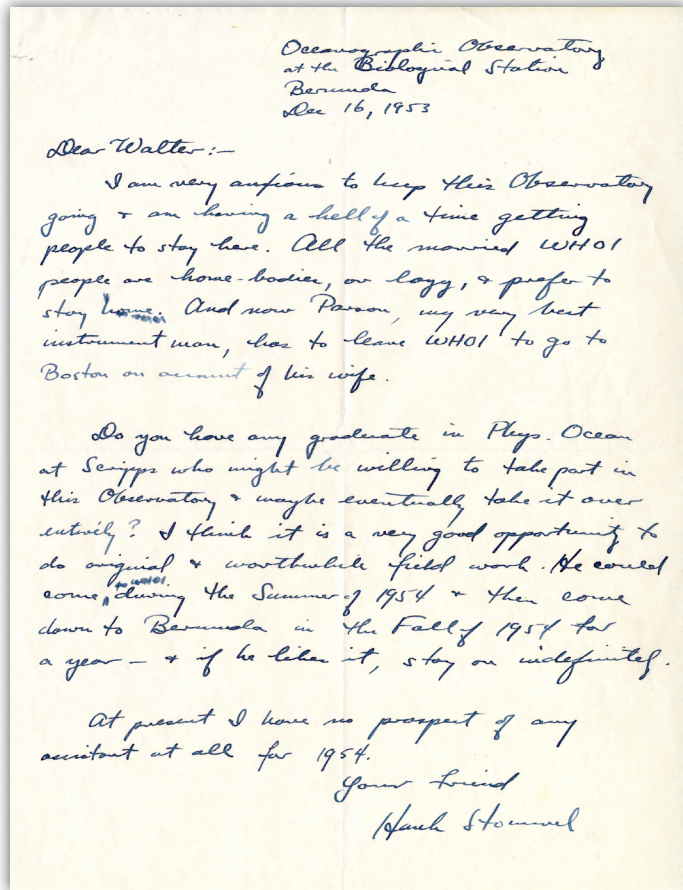 Oceanographic Observatory
at the Biological Station
Bermuda
Dec 16, 1953
Dear Walter:—
I am very anxious to keep this Observatory
going & am having a hell of a time getting
people to stay here. All the married WHOI
people are home-bodies, or lazy, & prefer to
stay home. And now Parson, my very best
instrument man, has to leave WHOI to go to
Boston on account of his wife.
Do you have any graduate in Phys. Ocean
at Scripps who might be willing to take part in
this Observatory & maybe eventually take it over
entirely? I think it is a very good opportunity to
do original & worthwhile field work. He could
to WHOI
come, during the Summer of 1954 & then come
down to Bermuda in the Fall of 1954 for
a year — & if he likes it, stay on indefinitely.
At present I have no prospect of any
assistant at all for 1954.
Your friend
Hank Stommel